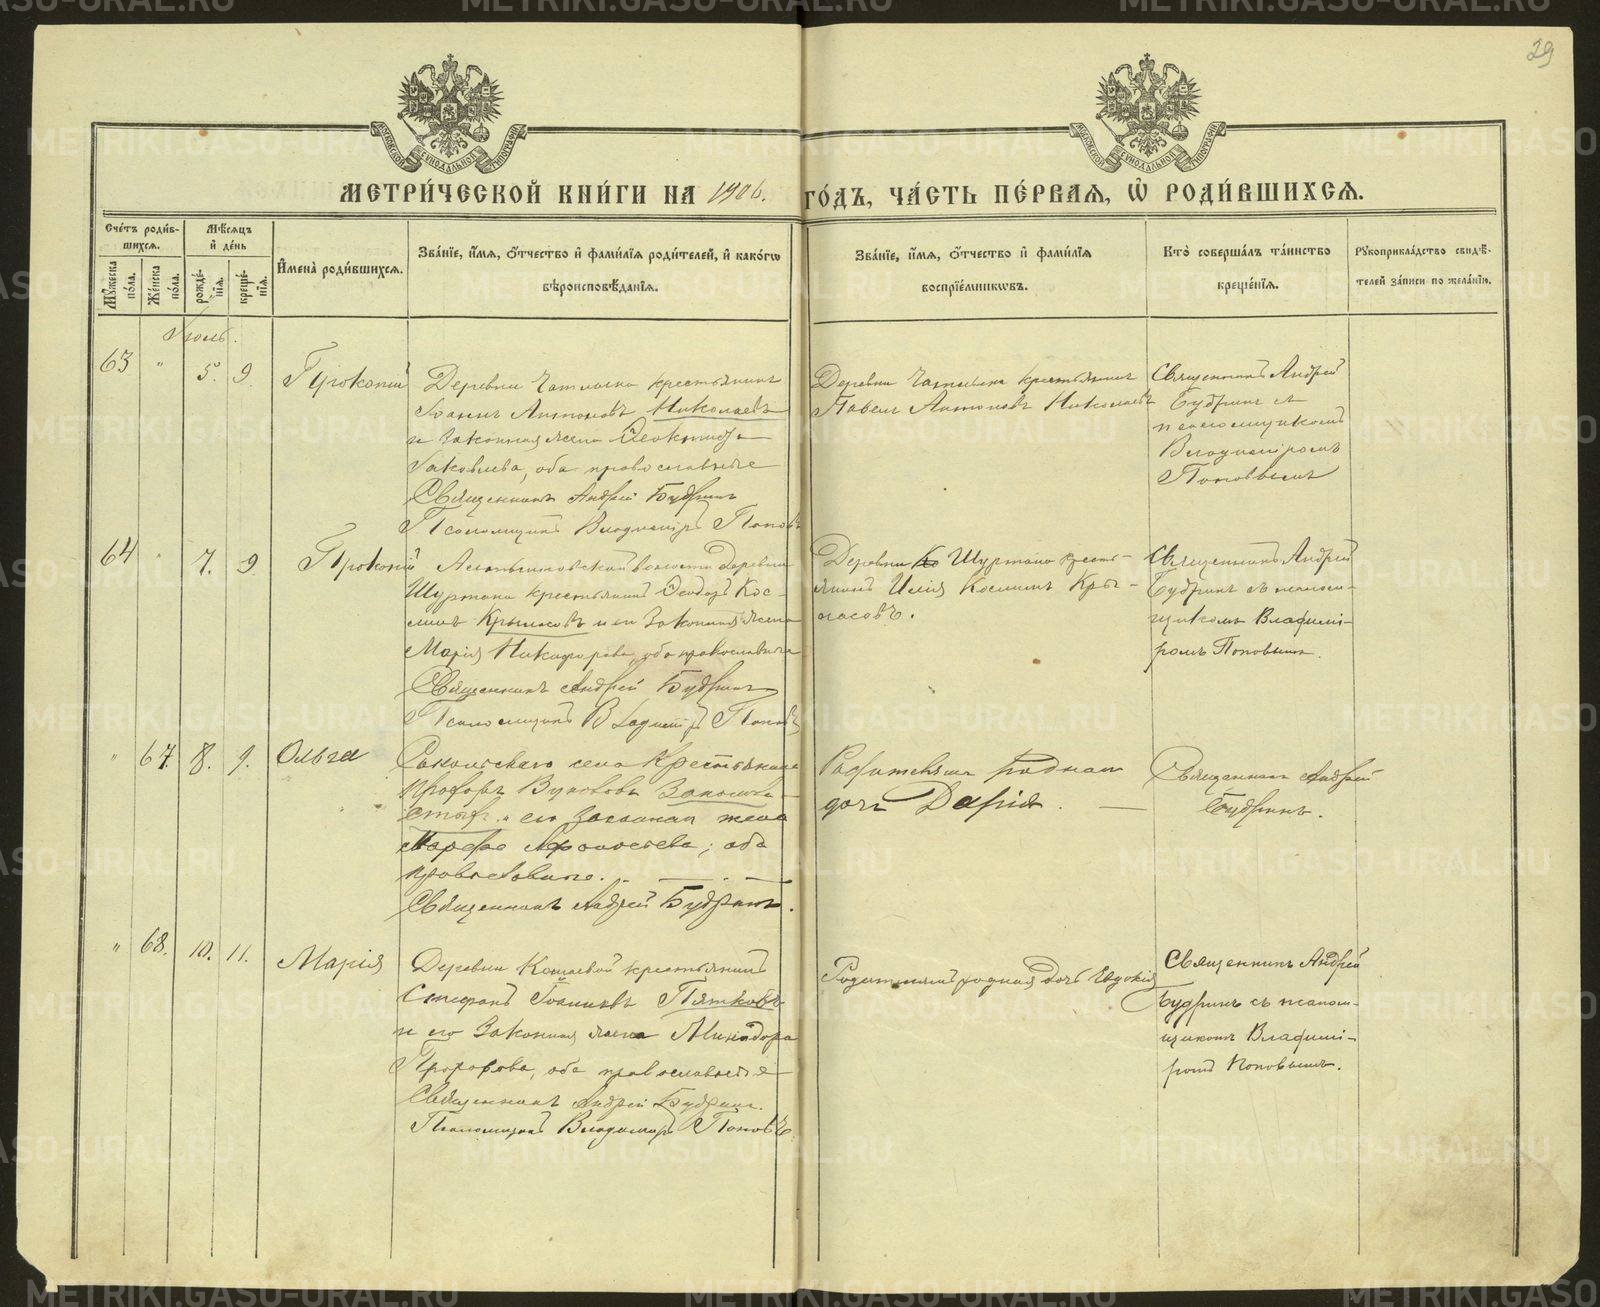 29
МОСКОВСКОЙ СѴНОДАЛЬНОЙ ТИПОГРАФІИ
МОСКОВСКОЙ СѴНОДАЛЬНОЙ ТИПОГРАФІИ
МЕТРИ́ЧЕСКОЙ КНИ́ГИ НА 1906. ГО́ДЪ, ЧА́СТЬ ПЕ́РВАЯ, Ѡ҆ РОДИ́ВШИХСЯ.
Сче́тъ роди́в-
шихся.
Мꙋ́жеска по́ла.
Же́нска по́ла.
Мѣ́сяцъ
и҆ де́нь
рожде́-
нїя.
креще́-
нїя.
И҆мена̀ роди́вшихся.
Зва́нїе, и҆́мя, ѻ҆́тчество и҆ фами́лїя роди́телей, и҆ како́гѡ
вѣроисповѣ́данїя.
Зва́нїе, и҆́мя, ѻ҆́тчество и҆ фами́лїя
воспрїе́мникѡвъ.
Кто̀ соверша́лъ та́инство
креще́нїя.
Рꙋкоприкла́дство свидѣ́-
телей за́писи по жела́нїю.
Іюль.
63 " 5. 9. Прокопій
Деревни крестьянинъ
Іоаннъ Антоновъ Николаевъ
и законная жена Ѳеоктиста
Іаковлева, оба православные
Священникъ Андрей Будринъ
Псаломщикъ Владиміръ Поповъ
Деревни крестьянинъ
Павелъ Антоновъ Николаевъ
Священникъ Андрей
Будринъ съ
псаломщикомъ
Владиміромъ
Поповымъ
64 " 7. 9. Прокопій
волости деревни
Шуртана крестьянинъ Ѳеодоръ Кос-
минъ Крыласовъ и его законная жена
Марія Никифорова, оба православные
Священникъ Андрей Будринъ
Псаломщикъ Владиміръ Поповъ
Деревни Шуртана кресть-
янинъ Илія Косминъ Кры-
ласовъ.
Священникъ Андрей
Будринъ съ псалом-
щикомъ Владимі-
ромъ Поповымъ.
" 67. 8. 9. Ольга
села Крестьянинъ
и его законная жена
Марфа Афанасьева; оба
православные.
Священникъ Андрей Будринъ.
Родителямъ родная
дочь Дарія.
Священникъ Андрей
Будринъ.
" 68. 10. 11. Марія
Деревни Кошаевой крестьянинъ
Стефанъ Іоанновъ Пятковъ
и его законная жена Минодора
Прохорова, оба православные
Священникъ Андрей Будринъ.
Псаломщикъ Владиміръ Поповъ
Родителямъ родная дочь Евдокія
Священникъ Андрей
Будринъ съ псалом-
щикомъ Владимі-
ромъ Поповымъ.
METRIKI.GASO-URAL.RU